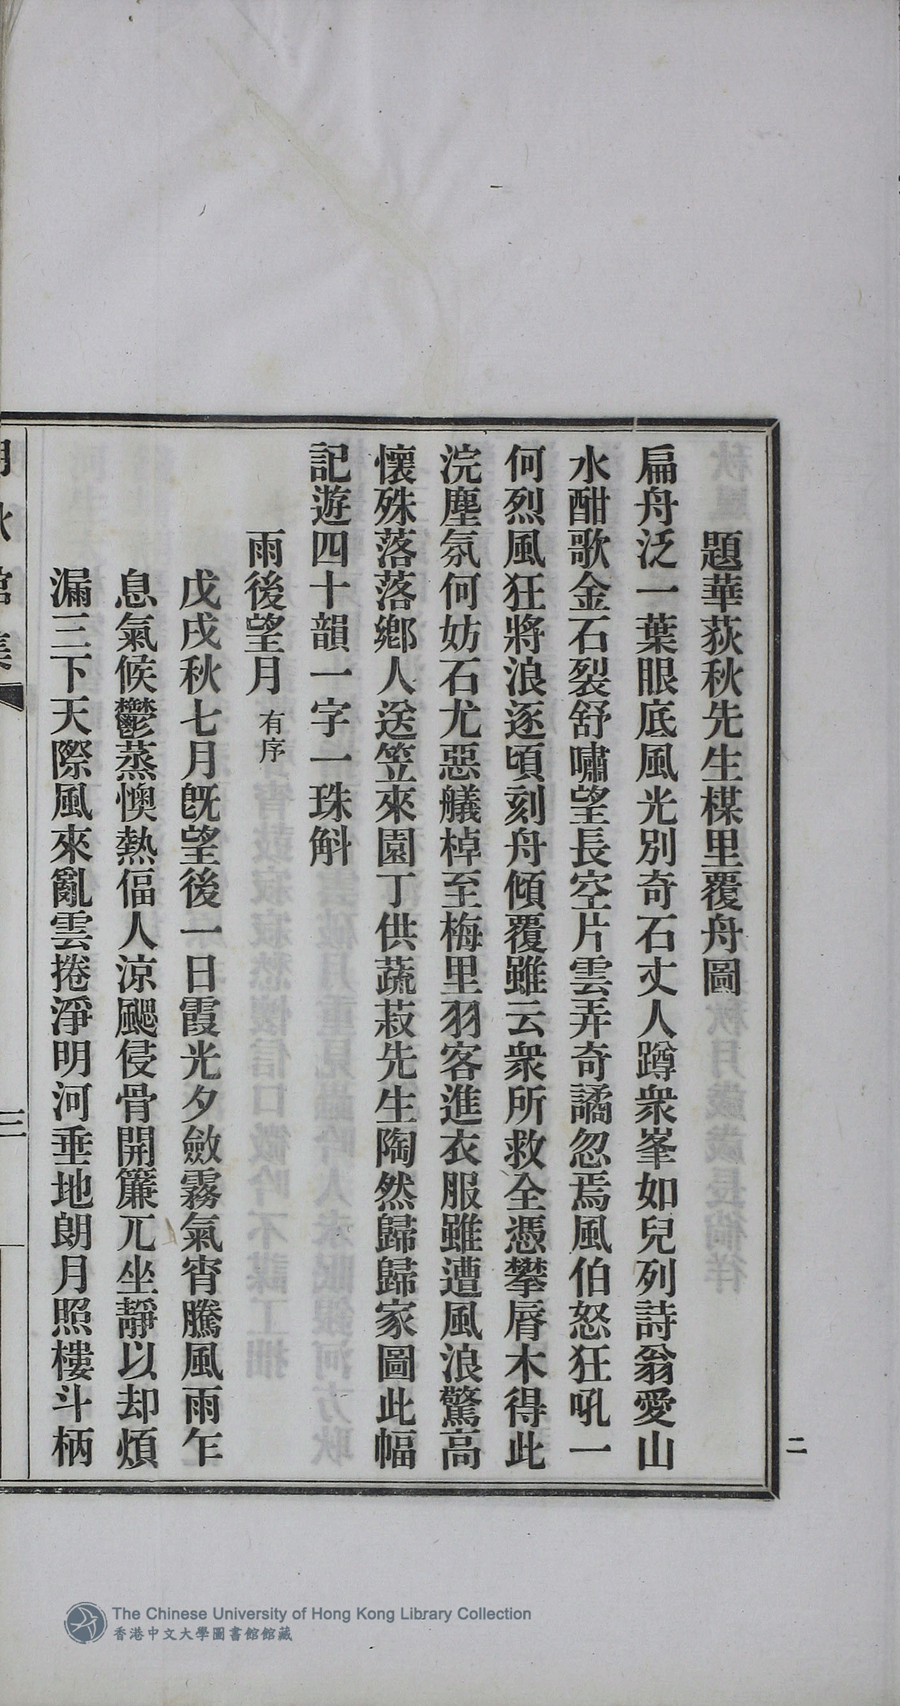 題華荻秋先生楳里覆舟圖
扁舟泛一葉眼底風光別奇石丈人蹲衆峯如兒列詩翁愛山
水酣歌金石裂舒嘯望長空片雲弄奇譎忽焉風伯怒狂吼一
何烈風狂將浪逐頃刻舟傾覆雖云衆所救全憑攀脣木得此
浣塵氛何妨石尤惡艤棹至梅里羽客進衣服雖遭風浪驚高
懷殊落落鄉人送笠來園丁供蔬菽先生陶然歸歸家圖此幅
記遊四十韻一字一珠斛
雨後望月 有序
戊戌秋七月旣望後一日霞光夕斂霧氣宵騰風雨乍
息氣候鬱蒸懊熱偪人涼颸侵骨開簾兀坐靜以却煩
漏三下天際風來亂雲捲淨明河垂地朗月照樓斗柄
秋館集
三
二
The Chinese University of Hong Kong Library Collection
香港中文大學圖書館館藏